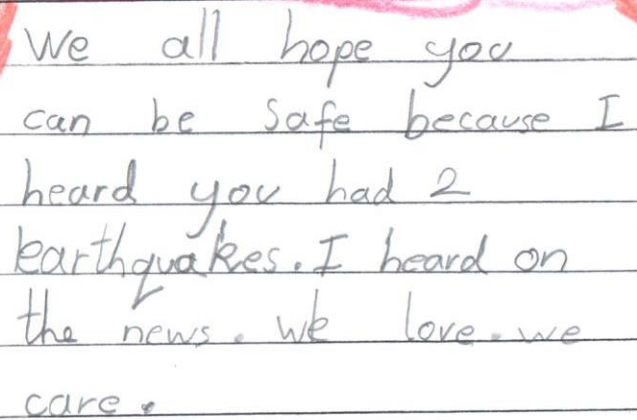 We all hope you
can be safe because I
heard you had 2
earthquakes. I heard on
the news. we love. we
care.